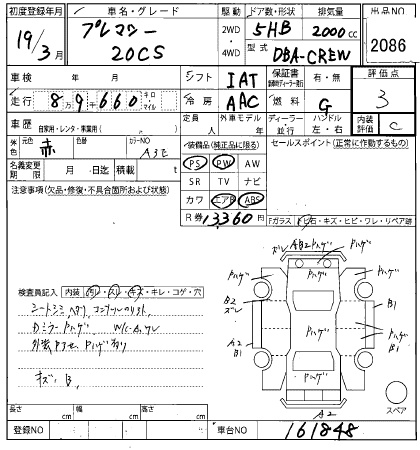 初度登録年月 車名・グレード 駆動 ドア数・形状 排気量 出品NO
19年 3月 プレマシー 20CS 2WD ・ 4WD 5HB 2000cc 2086
型式 DBA-CREW
車検 年 月 シフト IAT 保証書 有・無 評価点
走行 8万9千660 キロ マイル 冷房 AAC 燃料 G 3
車歴 自家用・レンタ・事業用( ) 定員 人 外車モデル 年 ディーラー・並行 ハンドル 左・右 内装評価 C
外色 元色 赤 色替 カラーNO A3E 装備品(純正品に限る) セールスポイント(正常に作動するもの)
名義変更期限 月 日迄 積載 t PS PW AW
SR TV ナビ
注意事項(欠品・修復・不具合箇所および状態) カワ エアB ABS
R券 13,360円 Fガラス 飛石・キズ・ヒビ・ワレ・リペア跡
ズレ AB2 Pハゲ
Pハゲ Pハゲ Pハゲ
検査員記入 内装 汚レ・スレ・キズ・キレ・コゲ・穴 B2 ズレ Pハゲ B1
シートシミ
DミラーPハゲ A2 B1 Pハゲ B1
Pハゲ Pハゲ Pハゲ
キズ、B スペア
A2
長さ cm 幅 cm 高さ cm
登録NO 車台NO 161848